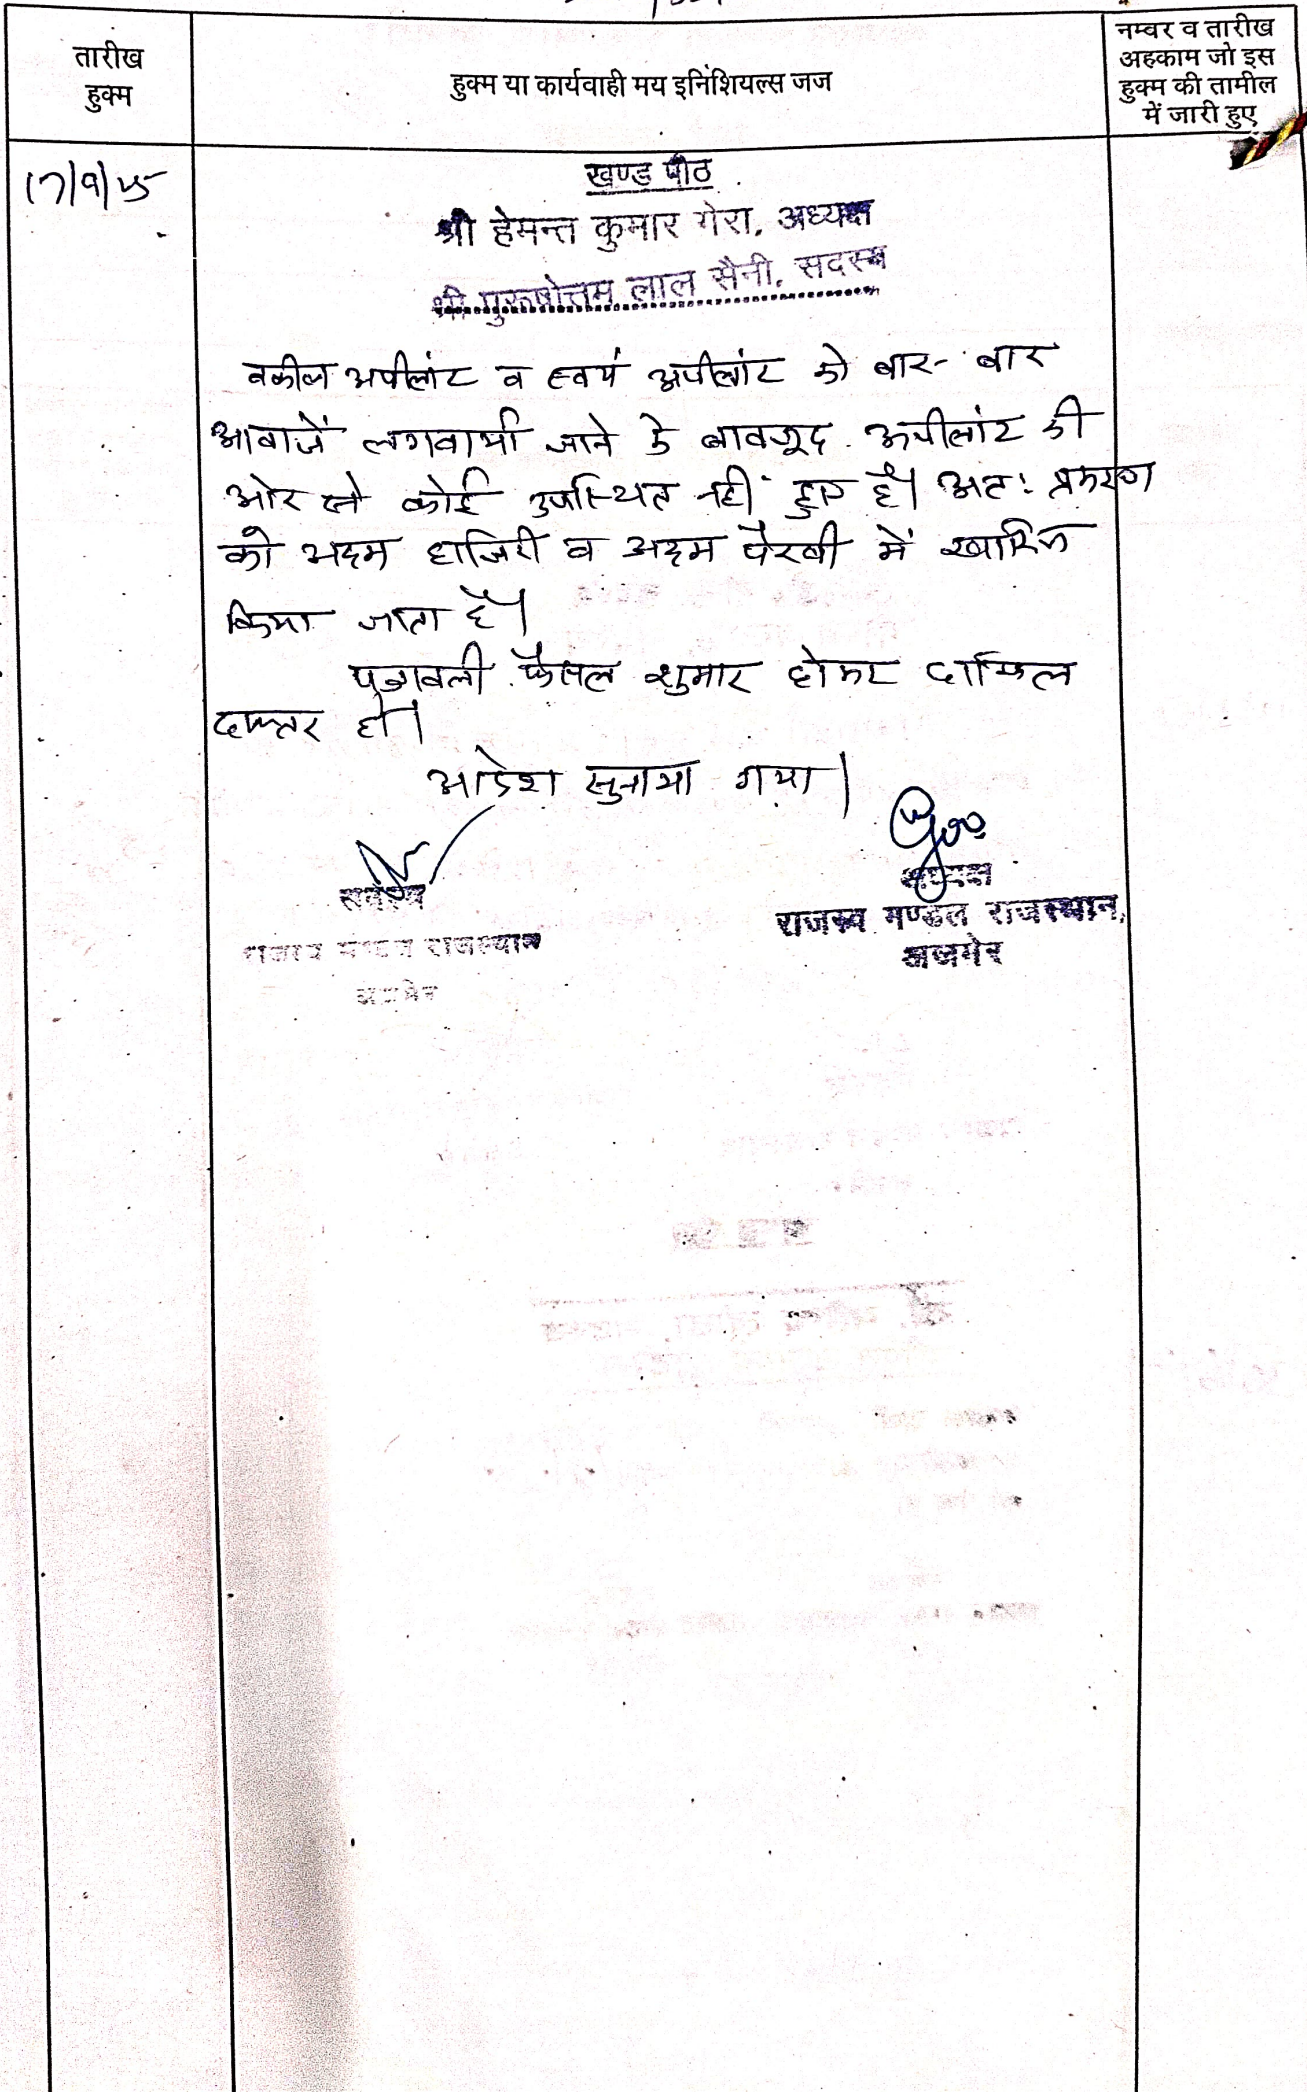 तारीख
हुक्म
हुक्म या कार्यवाही मय इनिंशियल्स जज
नम्बर व तारीख
अहकाम जो इस
हुक्म की तामील
में जारी हुए
17/9/25
खण्ड पीठ
श्री हेमन्त कुमार गेरा, अध्यक्ष
श्री पुरूषोत्तम लाल सैनी, सदस्य
वकील अपीलांट व स्वयं अपीलांट को बार-बार
आवाजें लगवायी जाने के बावजूद अपीलांट की
ओर से कोई उपस्थित नहीं हुए है। अतः प्रकरण
को अदम हाजिरी व अदम पैरवी में खारिज
किया जाता है।
पत्रावली फैसल शुमार होकर दाखिल
दफ्तर हो।
आदेश सुनाया गया।
सदस्य
राजस्व मण्डल राजस्थान
अजमेर
अध्यक्ष
राजस्व मण्डल राजस्थान,
अजमेर